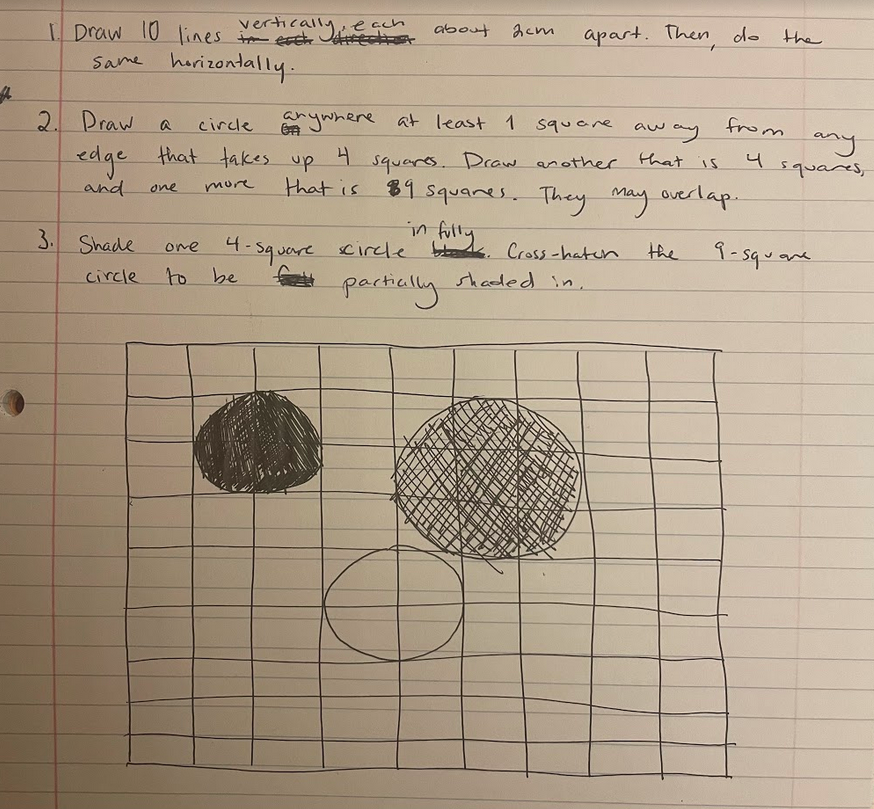 1. Draw 10 lines vertically, each about 2cm apart. Then, do the
same horizontally.
2. Draw a circle anywhere at least 1 square away from any
edge that takes up 4 squares. Draw another that is 4 squares,
and one more that is 9 squares. They may overlap.
3. Shade one 4-square circle in fully. Cross-hatch the 9-square
circle to be partially shaded in.